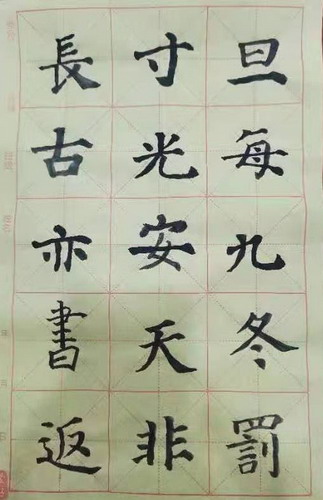 旦每九冬罰
寸光安天非
長古亦書返